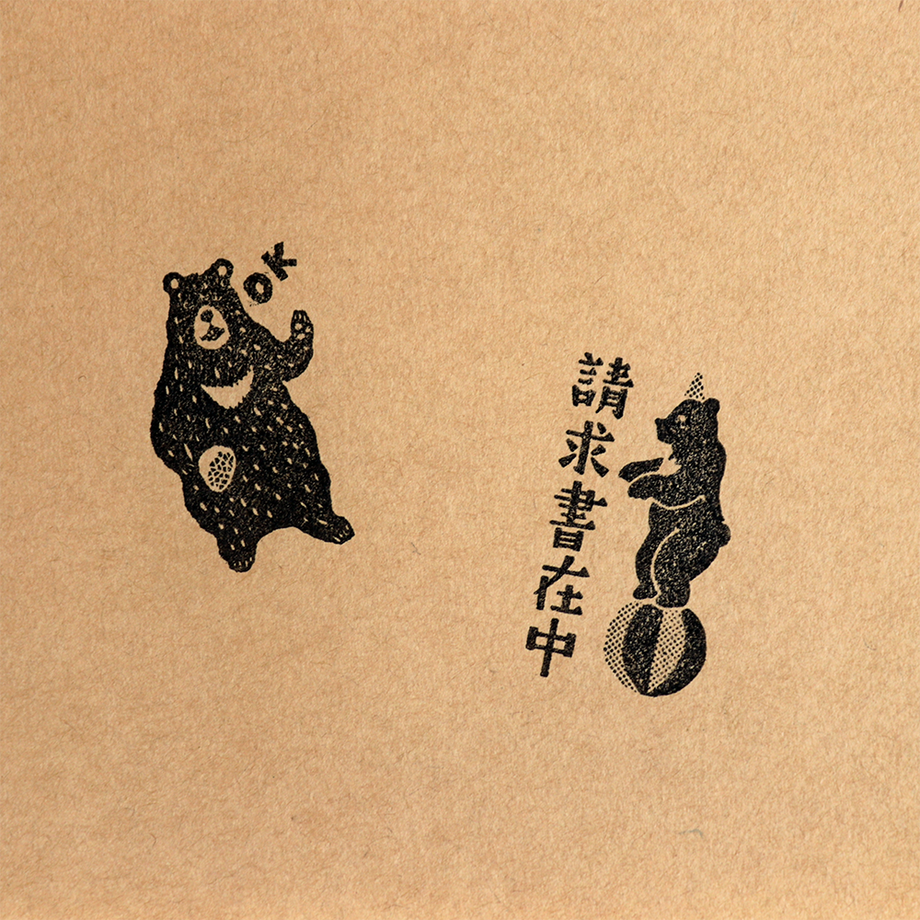 OK
請求書在中